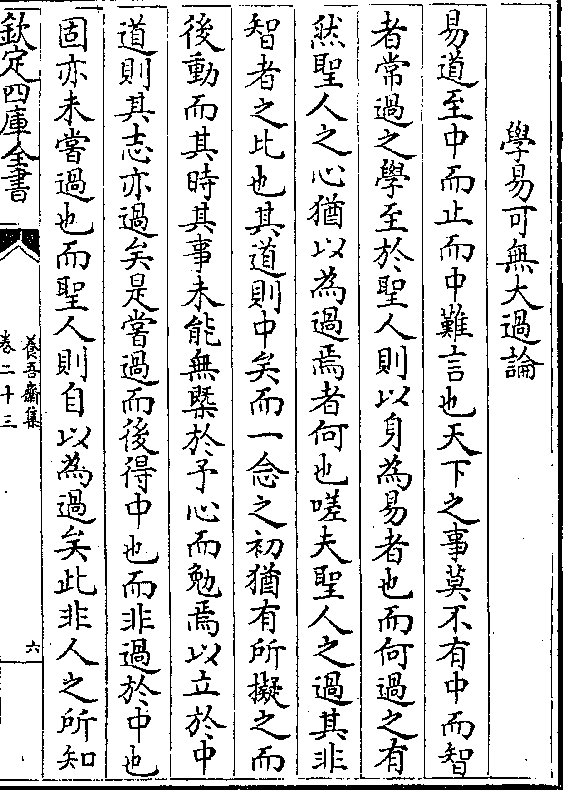 學易可無大過論
易道至中而止而中難言也天下之事莫不有中而智
者常過之學至於聖人則以身為易者也而何過之有
然聖人之心猶以為過焉者何也嗟夫聖人之過其非
智者之比也其道則中矣而一念之初猶有所擬之而
後動而其時其事未能無槩於予心而勉焉以立於中
道則其志亦過矣是嘗過而後得中也而非過於中也
固亦未嘗過也而聖人則自以為過矣此非人之所知
欽定四庫全書
養吾齋集
卷二十三
六